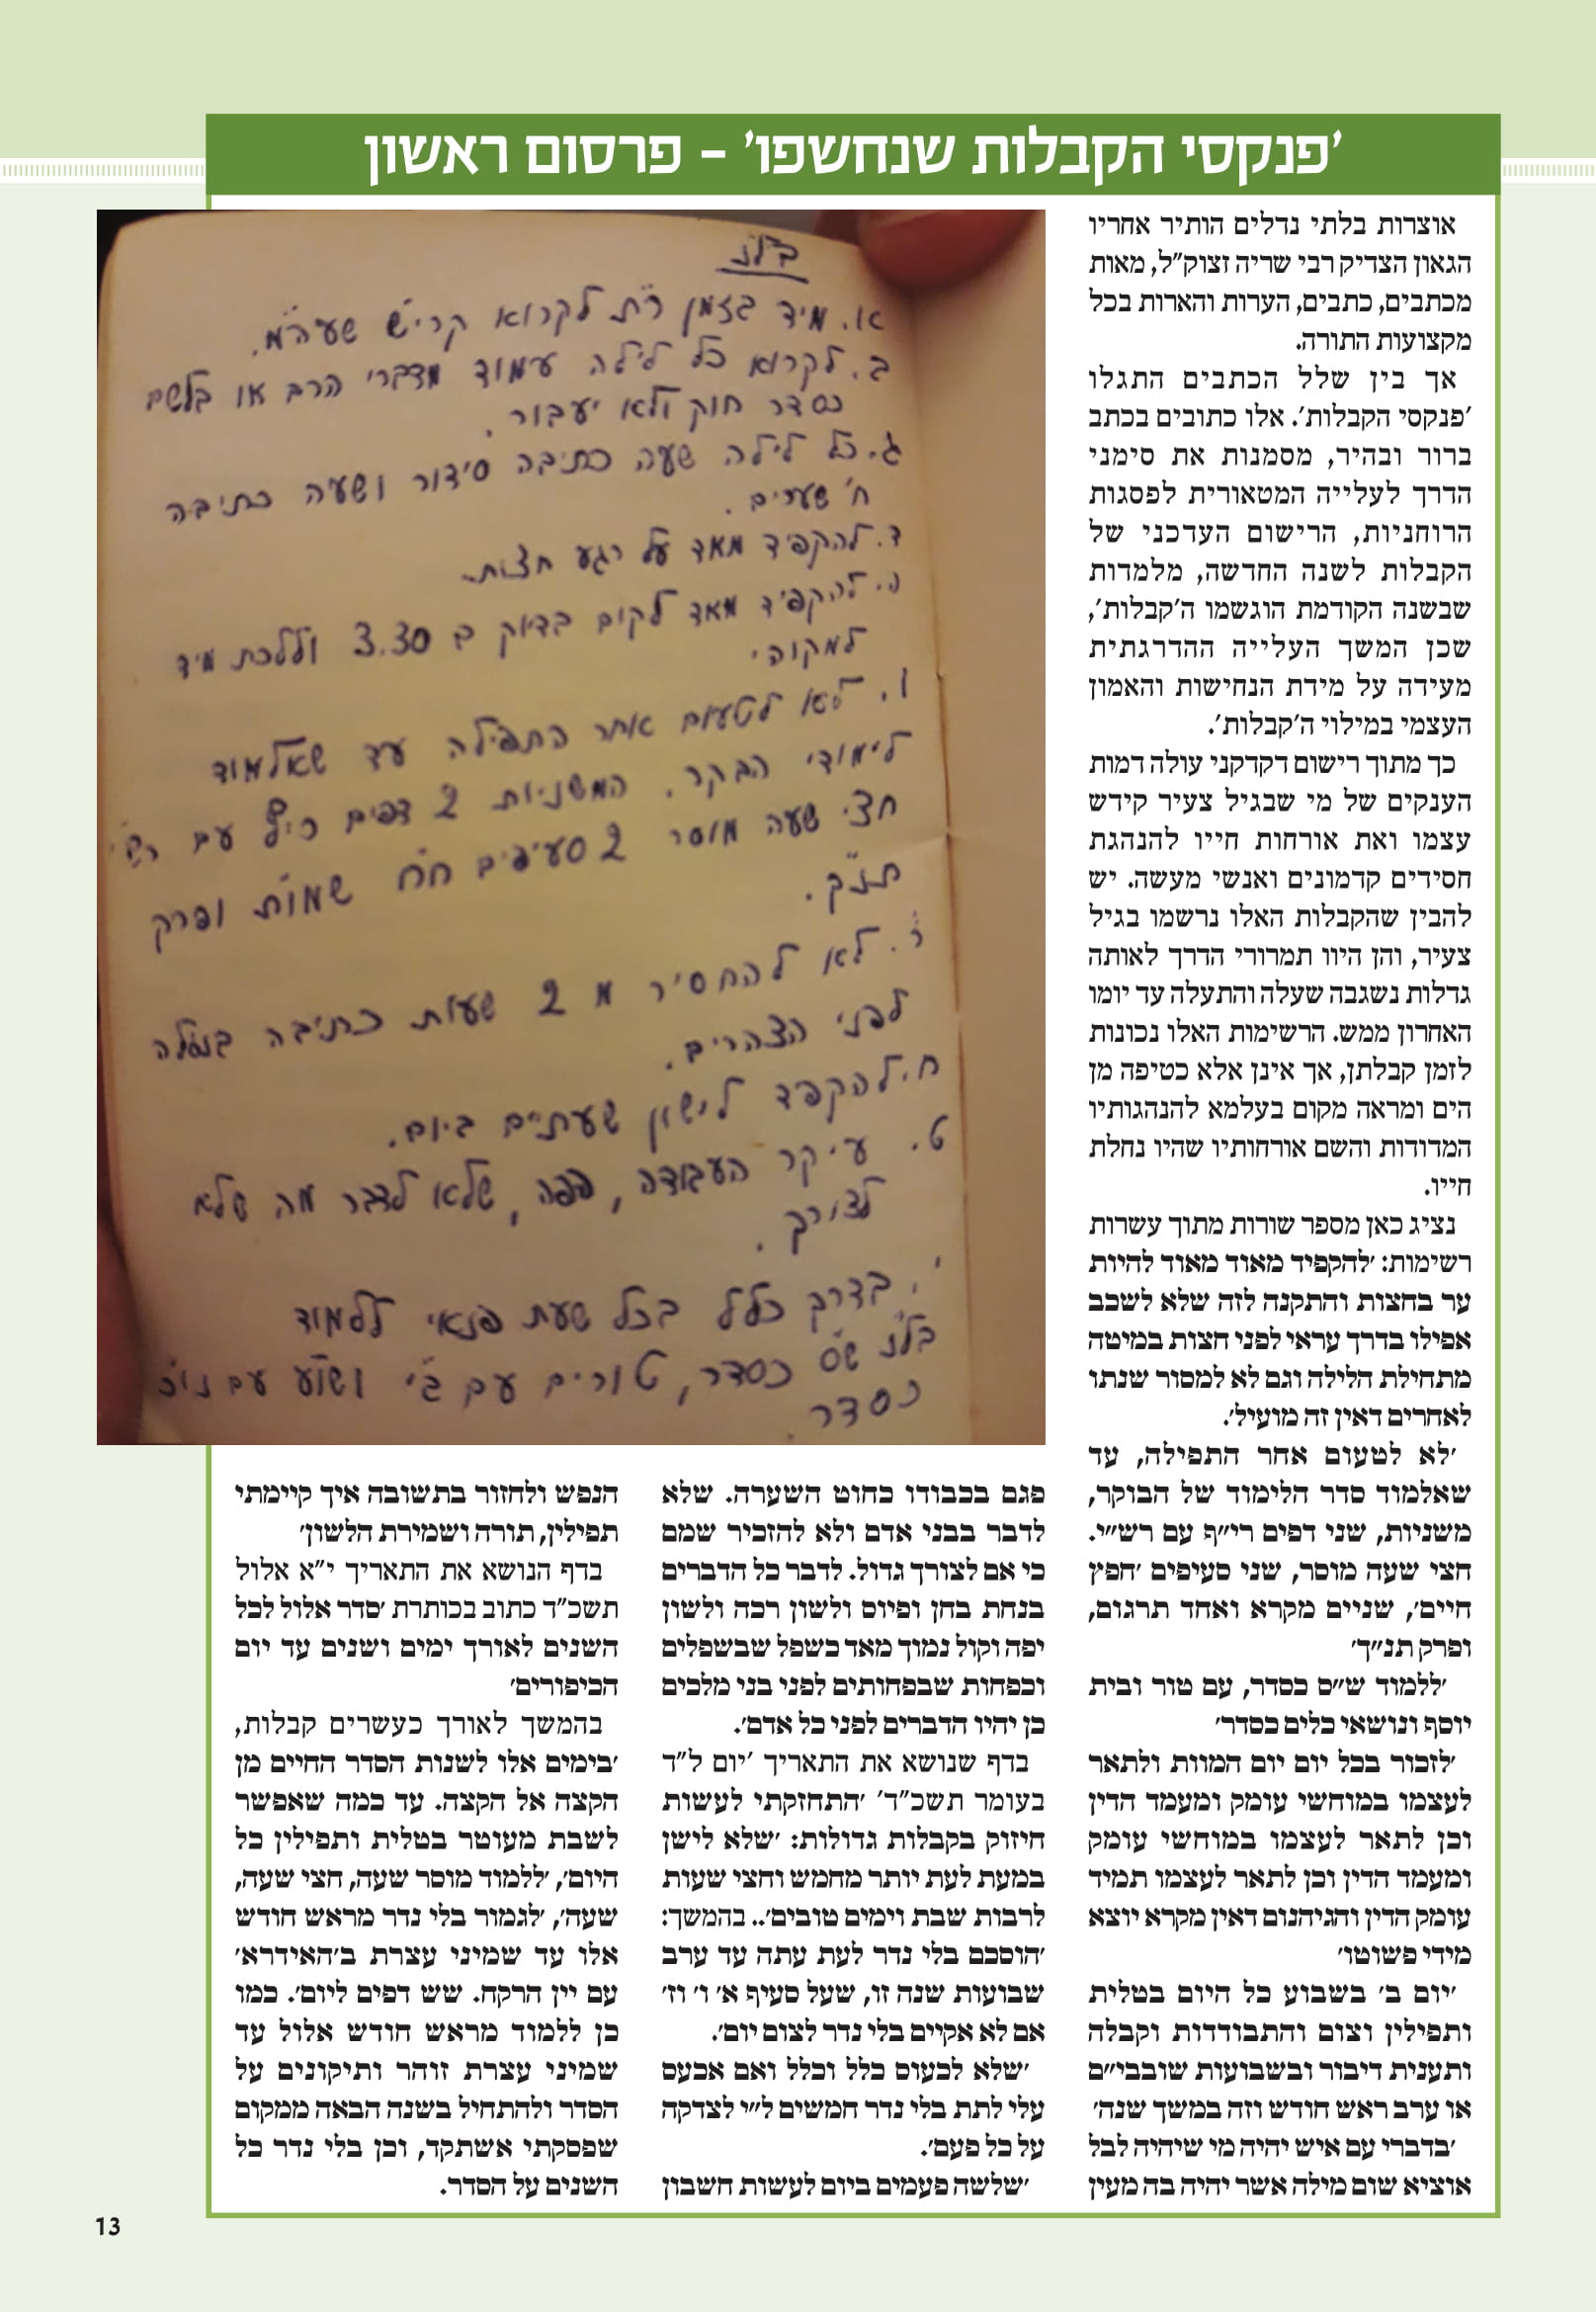 'פנקסי הקבלות שנחשפו' – פרסום ראשון
אוצרות בלתי נדלים הותיר אחריו
הגאון הצדיק רבי שריה זצוק"ל, מאות
מכתבים, כתבים, הערות והארות בכל
מקצועות התורה.
אך בין שלל הכתבים התגלו
'פנקסי הקבלות'. אלו כתובים בכתב
ברור ובהיר, מסמנות את סימני
הדרך לעלייה המטאורית לפסגות
הרוחניות, הרישום העדכני של
הקבלות לשנה החדשה, מלמדות
שבשנה הקודמת הוגשמו ה'קבלות',
שכן המשך העלייה ההדרגתית
מעידה על מידת הנחישות והאמון
העצמי במילוי ה'קבלות'.
כך מתוך רישום דקדקני עולה דמות
הענקים של מי שבגיל צעיר קידש
עצמו ואת אורחות חייו להנהגת
חסידים קדמונים ואנשי מעשה. יש
להבין שהקבלות האלו נרשמו בגיל
צעיר, והן היוו תמרורי הדרך לאותה
גדלות נשגבה שעלה והתעלה עד יומו
האחרון ממש. הרשימות האלו נכונות
לזמן קבלתן, אך אינן אלא כטיפה מן
הים ומראה מקום בעלמא להנהגותיו
המדודות והשם אורחותיו שהיו נחלת
חייו.
נציג כאן מספר שורות מתוך עשרות
רשימות: 'להקפיד מאוד מאוד להיות
ער בחצות והתקנה לזה שלא לשכב
אפילו בדרך עראי לפני חצות במיטה
מתחילת הלילה וגם לא למסור שנתו
לאחרים דאין זה מועיל'.
'לא לטעום אחר התפילה, עד
שאלמוד סדר הלימוד של הבוקר,
משניות, שני דפים רי"ף עם רש"י.
חצי שעה מוסר, שני סעיפים 'חפץ
חיים', שניים מקרא ואחד תרגום,
ופרק תנ"ך'
'ללמוד ש"ס כסדר, עם טור ובית
יוסף ונושאי כלים כסדר'
'לזכור בכל יום יום המוות ולתאר
לעצמו במוחשי עומק ומעמד הדין
וכן לתאר לעצמו במוחשי עומק
ומעמד הדין וכן לתאר לעצמו תמיד
עומק הדין והגיהנום דאין מקרא יוצא
מידי פשוטו'
'יום ב' בשבוע כל היום בטלית
ותפילין וצום והתבודדות וקבלה
ותענית דיבור ובשבועות שובבי"ם
או ערב ראש חודש וזה במשך שנה'
'בדברי עם איש יהיה מי שיהיה לבל
אוציא שום מילה אשר יהיה בה מעין
ב"לנ
או. מיד בזמן ר"ת לקרוא קרי"ש שעה"מ.
ב. לקרוא כל לילה עמוד מדברי הרב או בלשם
כסדר חוק ולא יעבור.
ג. כל לילה שעה כתיבה סידור ושעה כתיבה
ח' שערים.
ד. להקפיד מאד על רגע חצות.
ה. להקפיד מאד לקום בדיוק ב 3.30 וללכת מיד
למקוה.
ו. לא לטעום אחר התפילה עד שאלמוד
לימודי הבקר. המשניות 2 דפים רי"ף עם רש"י
חצי שעה מוסר 2 סעיפים ח"ח שמו"ת ופרק
תנ"ך.
ז. לא להחסיר מ 2 שעות כתיבה בנגלה
לפני הצהרים.
ח. להקפד לישון שעתיים ביום.
ט. עיקר העבודה, הפה, שלא לדבר מה שלא
לצורך.
י. בדרך כלל בכל שעת פנאי ללמוד
ב"לנ ש"ס כסדר, טורים עם ב"י ושו"ע עם נו"כ
כסדר.
פגם בכבודו כחוט השערה. שלא
לדבר בבני אדם ולא להזכיר שמם
כי אם לצורך גדול. לדבר כל הדברים
בנחת בחן ופיוס ולשון רכה ולשון
יפה וקול נמוך מאד כשפל שבשפלים
וכפחות שבפחותים לפני בני מלכים
כן יהיו הדברים לפני כל אדם'.
בדף שנושא את התאריך 'יום ל"ד
בעומר תשכ"ד' 'התחזקתי לעשות
חיזוק בקבלות גדולות: 'שלא לישן
במעת לעת יותר מחמש וחצי שעות
לרבות שבת וימים טובים'.. בהמשך:
'הוסכם בלי נדר לעת עתה עד ערב
שבועות שנה זו, שעל סעיף א' ו' וז'
אם לא אקיים בלי נדר לצום יום'.
'שלא לכעוס כלל וכלל ואם אכעס
עלי לתת בלי נדר חמשים ל"י לצדקה
על כל פעם'.
'שלשה פעמים ביום לעשות חשבון
הנפש ולחזור בתשובה איך קיימתי
תפילין, תורה ושמירת הלשון'
בדף הנושא את התאריך י"א אלול
תשכ"ד כתוב בכותרת 'סדר אלול לכל
השנים לאורך ימים ושנים עד יום
הכיפורים'
בהמשך לאורך כעשרים קבלות,
'בימים אלו לשנות הסדר החיים מן
הקצה אל הקצה. עד כמה שאפשר
לשבת מעוטר בטלית ותפילין כל
היום', 'ללמוד מוסר שעה, חצי שעה,
שעה', 'לגמור בלי נדר מראש חודש
אלו עד שמיני עצרת ב'האידרא'
עם יין הרקח. שש דפים ליום'. כמו
כן ללמוד מראש חודש אלול עד
שמיני עצרת זוהר ותיקונים על
הסדר ולהתחיל בשנה הבאה ממקום
שפסקתי אשתקד, וכן בלי נדר כל
השנים על הסדר.
13